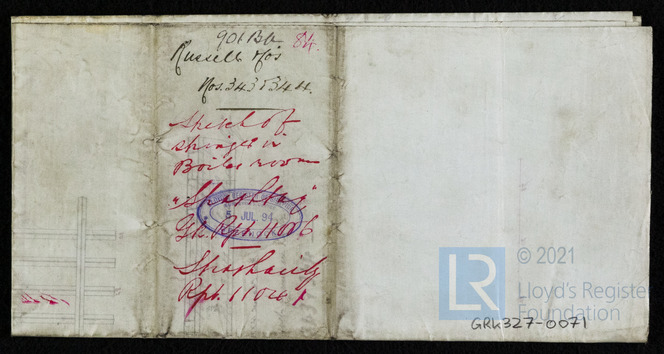 901 Bk 84.
Russell & Co's
Nos. 343 & 344.
Sketch of
stringer in
Boiler room
5 JUL 94
Gk. Rpt. 11006
Rpt. 11041
LR
© 2021
Lloyd's Register
Foundation
GRK327-0071